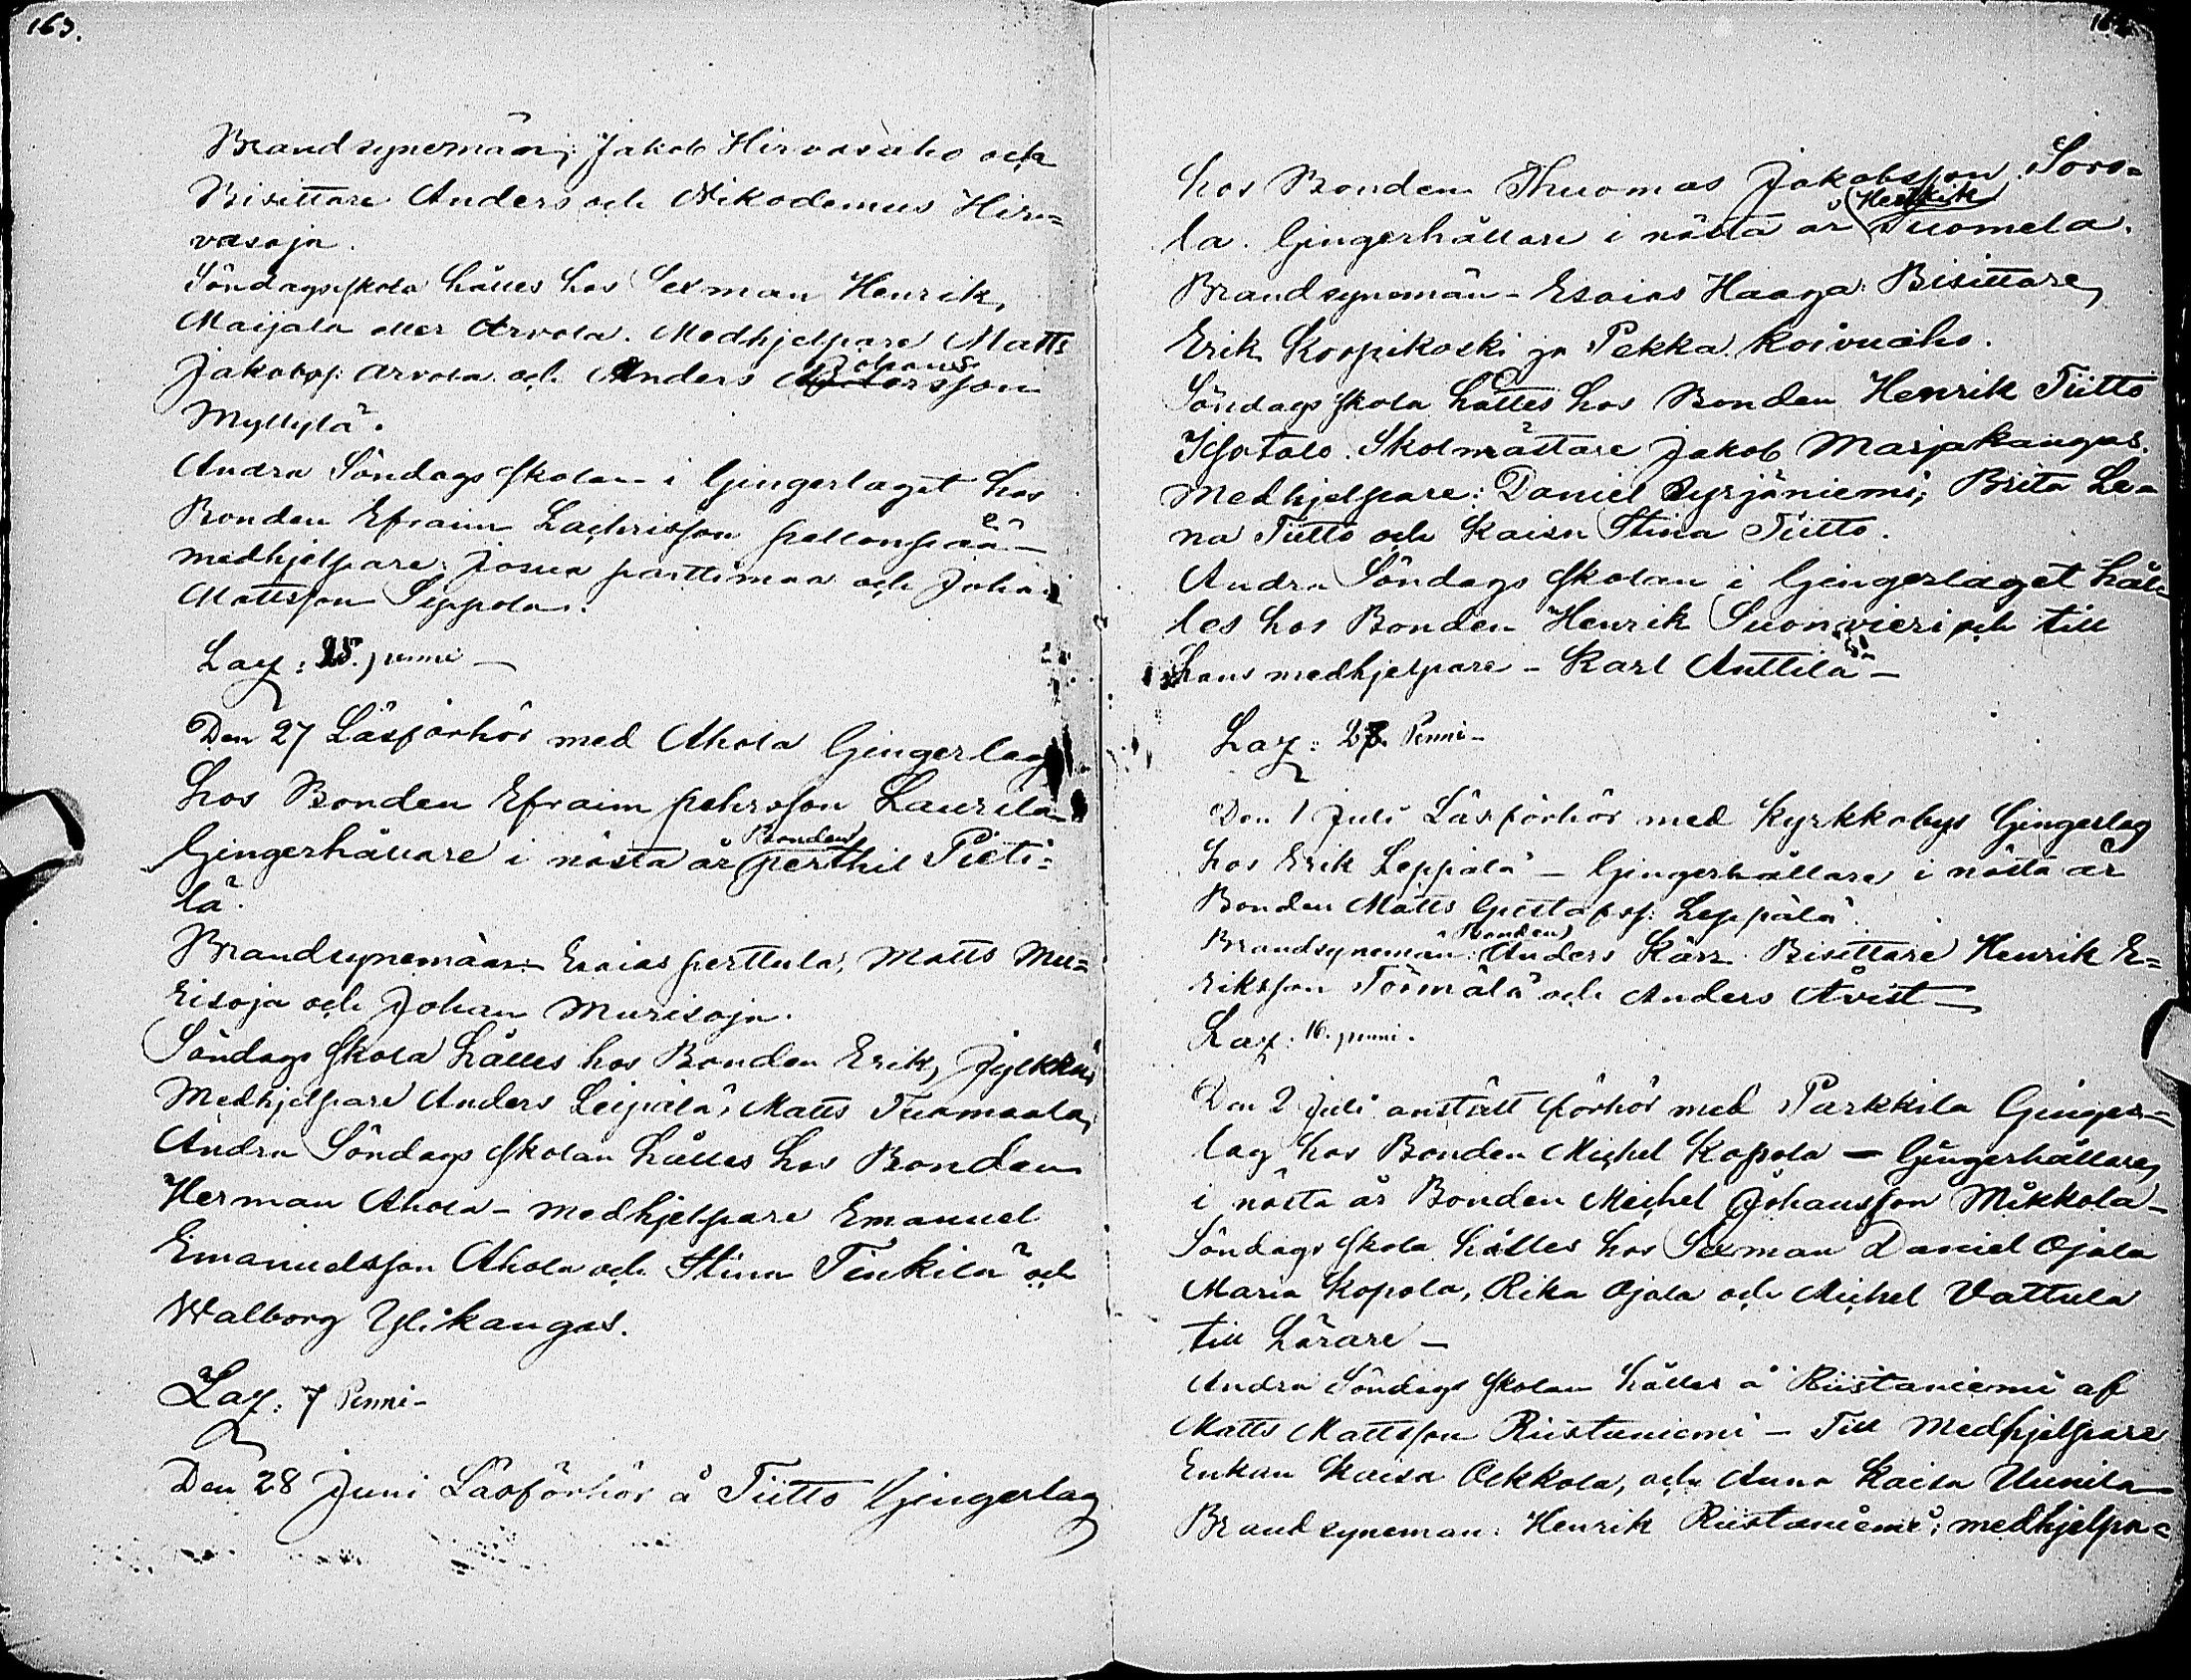 163.
Brandsynemän; Jakob Hirvasaho och
Bisittare Anders och Nikodemus Hir=
vasoja.
Söndagsskola hålles hos Sexman Henrik,
Maijala eller Arvola. Medhjelpare Matts
Jakobss: Arvola och Anders Johansson
Myllylä.
Andra Söndags skolan i Gingerlaget hos
Bonden Efraim Zachrisson pellonpää -
medhjelpare. Josua parttimaa och Johan
Mattsson Seppola.
Lay: 25. penni -
Den 27 Läsförhör med Ahola Gingerlag
hos Bonden Efraim pehrsson Laurila
Gingerhållare i nästa år Bonden perthil Pieti=
lä.
Brandsynemän: Esaias perttula, Matts Mu=
risoja och Johan Murisoja.
Söndags skola hålles hos Bonden Erik, Jylkkä
Medhjelpare Anders Leipälä, Matts Tuomaala,
Andra Söndags skolan hålles hos Bonden
Herman Ahola - medhjelpare Emanuel
Emanuelsson Ahola och Stina Tinkilä och
Walborg Ylikangas.
Lay: 7 Penni -
Den 28 Juni Läsförhör å Tiitto Gingerlag
hos Bonden Thuomas Jakobsson Soro=
la. Gingerhållare i nästa år Henrik Tuomela.
Brandsynemän - Esaias Haaga. Bisittare,
Erik Korpikoski ja Pekka Koivuaho.
Söndags skola hålles hos Bonden Henrik Tiitto
Isotalo. Skolmästare Jakob Marjakangas.
Medhjelpare: Daniel Syrjäniemi, Brita Le=
na Tiitto och Kaisa Stina Tiitto.
Andra Söndags skolan i Gingerlaget hål=
les hos Bonden Henrik Suonvieri och till
hans medhjelpare - Karl Anttila -
Lay: Penni -
Den 1 Juli Läsförhör med Kyrkkobys Gingerlag
hos Erik Leppälä - Gingerhållare i nästa år
Bonden Matts Gustafss: Leppälä.
Brandsynemän: Bonden Anders Kärr. Bisittare Henrik E=
riksson Törmälä och Anders Åvist -
Lay: 16. penni.
Den 2 Juli anstält förhör med Parkkila Ginger=
lag hos Bonden Michel Kopola - Gingerhållare,
i nästa år Bonden Michel Johansson Mikkola -
Söndags skola hålles hos Sexman Daniel Ojala
Maria Kopola, Rika Ojala och Michel Vattula
till Lärare -
Andra Söndags skolan hålles å Riistaniemi af
Matts Mattsson Riistaniemi - Till Medhjelpare
Enkan Kaisa Ockkola, och Anna Kaisa Uunila
Brandsyneman: Henrik Riistaniemi; medhjelpa=